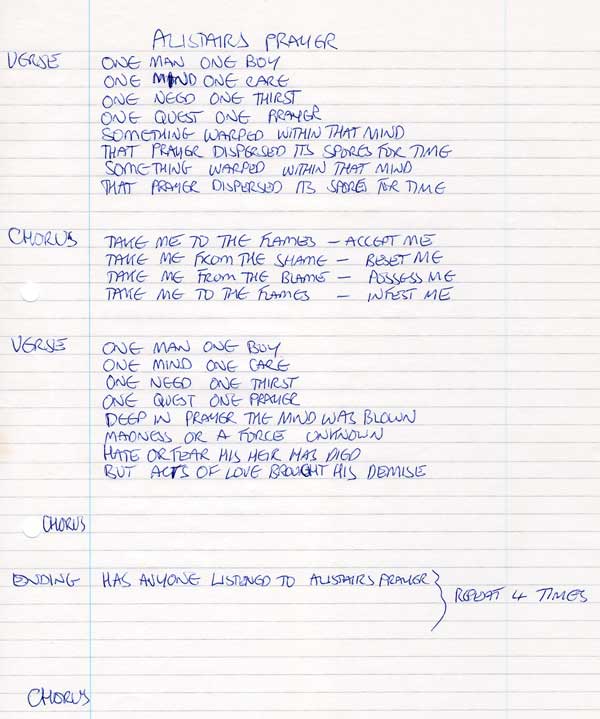 ALISTAIRS PRAYER
VERSE ONE MAN ONE BOY
ONE MIND ONE CARE
ONE NEED ONE THIRST
ONE QUEST ONE PRAYER
SOMETHING WARPED WITHIN THAT MIND
THAT PRAYER DISPERSED ITS SPORES FOR TIME
SOMETHING WARPED WITHIN THAT MIND
THAT PRAYER DISPERSED ITS SPORES FOR TIME
CHORUS TAKE ME TO THE FLAMES – ACCEPT ME
TAKE ME FROM THE SHAME – RESET ME
TAKE ME FROM THE BLAME – POSSESS ME
TAKE ME TO THE FLAMES – INFEST ME
VERSE ONE MAN ONE BOY
ONE MIND ONE CARE
ONE NEED ONE THIRST
ONE QUEST ONE PRAYER
DEEP IN PRAYER THE MIND WAS BLOWN
MADNESS OR A FORCE UNKNOWN
HATE OR FEAR HIS HEIR HAS DIED
BUT ACTS OF LOVE BROUGHT HIS DEMISE
CHORUS
ENDING HAS ANYONE LISTENED TO ALISTAIRS PRAYER } REPEAT 4 TIMES
CHORUS